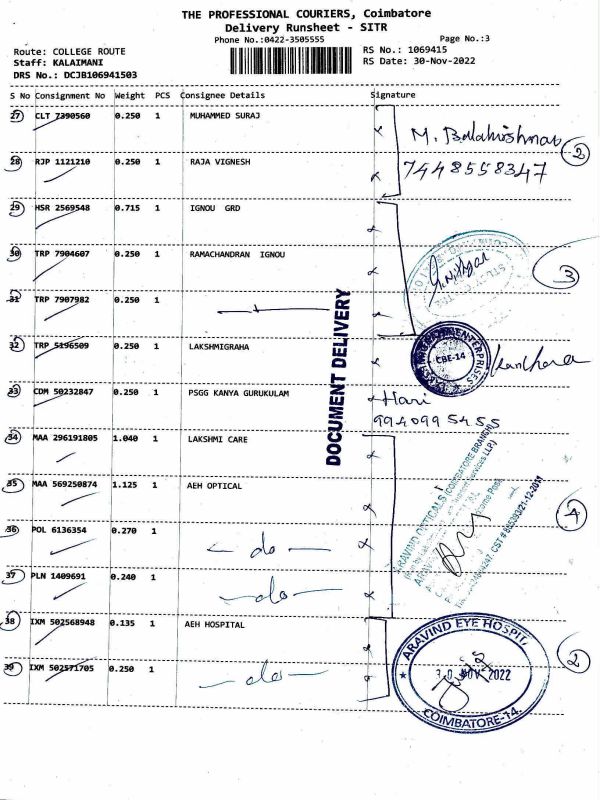 THE PROFESSIONAL COURIERS, Coimbatore
Delivery Runsheet - SITR
Phone No.:0422-3505555
Page No.:3
Route: COLLEGE ROUTE
RS No.: 1069415
Staff: KALAIMANI
RS Date: 30-Nov-2022
DRS No.: DCJB106941503
S No Consignment No Weight PCS Consignee Details Signature
27 CLT 7390560 0.250 1 MUHAMMED SURAJ
M. Balakrishnan
2
28 RJP 1121210 0.250 1 RAJA VIGNESH
7448558347
29 HSR 2569548 0.715 1 IGNOU GRD
30 TRP 7904607 0.250 1 RAMACHANDRAN IGNOU
3
31 TRP 7907982 0.250 1
DOCUMENT DELIVERY
32 TRP 5196509 0.250 1 LAKSHMIGRAHA
ENTERPRISES
CBE-14
33 CDM 50232847 0.250 1 PSGG KANYA GURUKULAM
Hari
9940995455
34 MAA 296191805 1.040 1 LAKSHMI CARE
35 MAA 569250874 1.125 1 AEH OPTICAL
ARAVIND OPTICALS (COIMBATORE BRANCH)
4
36 POL 6136354 0.270 1 - do -
37 PLN 1409691 0.240 1 - do -
38 IXM 502568948 0.135 1 AEH HOSPITAL
ARAVIND EYE HOSPIT
2
39 IXM 502571705 0.250 1 - do -
30 NOV 2022
COIMBATORE-14.